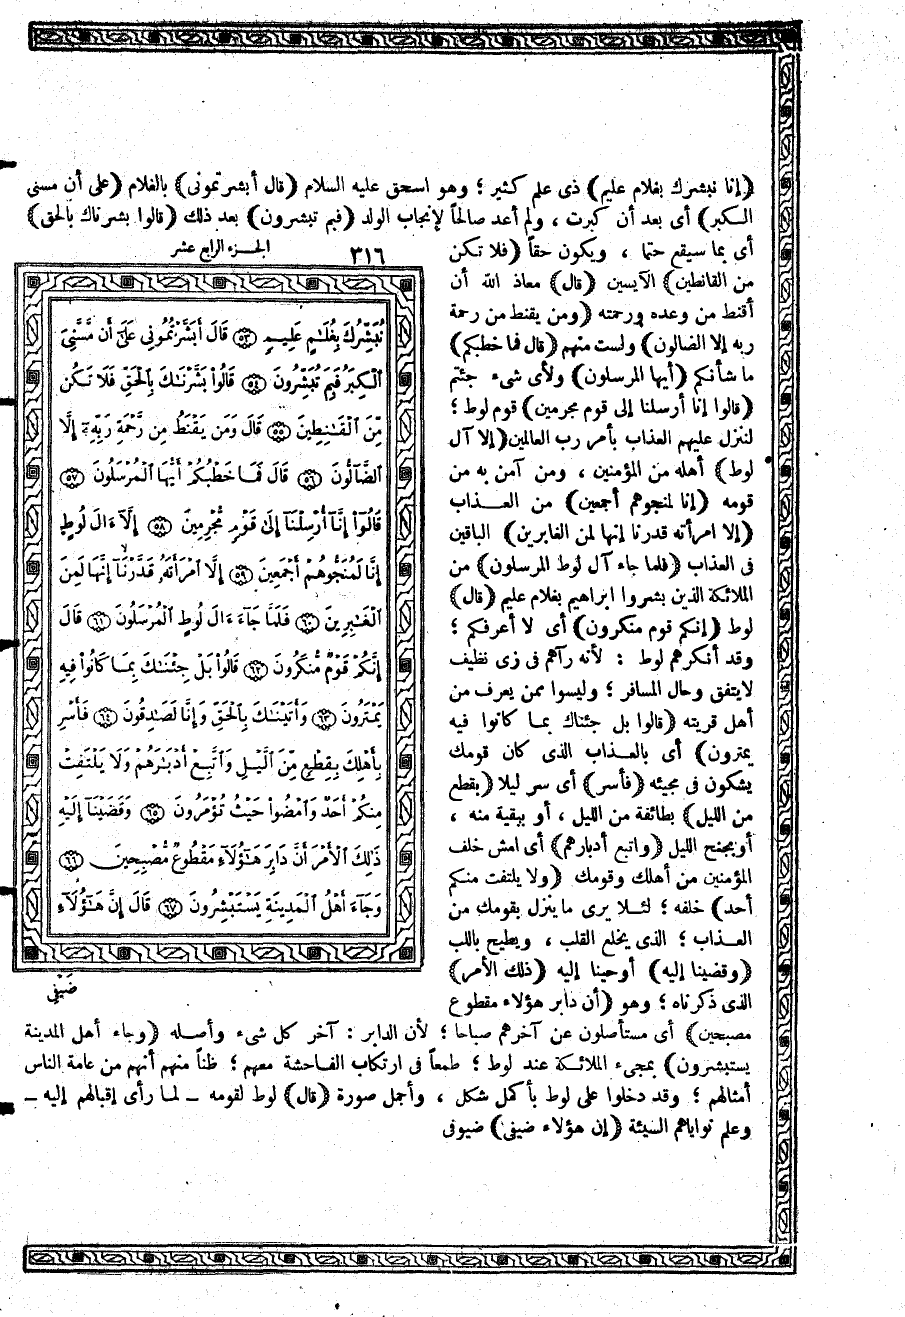 (إنا نبشرك بغلام عليم) ذى علم كثير ؛ وهو اسحق عليه السلام (قال أبشرتمونى) بالغلام (على أن مسنى
الكبر) أى بعد أن كبرت ، ولم أعد صالحاً لإنجاب الولد (فبم تبشرون) بعد ذلك (قالوا بشرناك بالحق)
أى بما سيقع حتما ، ويكون حقاً (فلا تكن
من القانطين) الآيسين (قال) معاذ الله أن
أقنط من وعده ورحمته (ومن يقنط من رحمة
ربه إلا الضالون) ولست منهم (قال فما خطبكم)
ما شأنكم (أيها المرسلون) ولأى شىء جئتم
(قالوا إنا أرسلنا إلى قوم مجرمين) قوم لوط ؛
لننزل عليهم العذاب بأمر رب العالمين (إلا آل
لوط) أهله من المؤمنين ، ومن آمن به من
قومه (إنا لمنجوهم أجمعين) من العـذاب
(إلا امرأته قدرنا إنها لمن الغابرين) الباقين
فى العذاب (فلما جاء آل لوط المرسلون) من
الملائكة الذين بشروا ابراهيم بغلام عليم (قال)
لوط (إنكم قوم منكرون) أى لا أعرفكم ؛
وقد أنكرهم لوط : لأنه رآهم فى زى نظيف
لايتفق وحال المسافر ؛ وليسوا ممن يعرف من
أهل قريته (قالوا بل جئناك بما كانوا فيه
يمترون) أى بالعـذاب الذى كان قومك
يشكون فى مجيئه (فأسر) أى سر ليلا (بقطع
من الليل) بطائفة من الليل ، أو ببقية منه ،
أوبجنح الليل (واتبع أدبارهم) أى امش خلف
المؤمنين من أهلك وقومك (ولا يلتفت منكم
أحد) خلفه ؛ لئـلا يرى ماينزل بقومك من
العـذاب ؛ الذى يخلع القلب ، ويطيح باللب
(وقضينا إليه) أوحينا إليه (ذلك الأمر)
الذى ذكرناه ؛ وهو (أن دابر هؤلاء مقطوع
مصبحين) أى مستأصلون عن آخرهم صباحا ؛ لأن الدابر : آخر كل شىء وأصله (وجاء أهل المدينة
يستبشرون) بمجىء الملائكة عند لوط ؛ طمعاً فى ارتكاب الفاحشة معهم ؛ ظناً منهم أنهم من عامة الناس
أمثالهم ؛ وقد دخلوا على لوط بأكمل شكل ، وأجمل صورة (قال) لوط لقومه – لما رأى إقبالهم إليه –
وعلم نواياهم السيئة (إن هؤلاء ضيفى) ضيوفى
٣١٦
الجـزء الرابع عشر
نُبَشِّرُكَ بِغُلَٰمٍ عَلِيمٍ ﴿٥٣﴾ قَالَ أَبَشَّرْتُمُونِى عَلَىٰٓ أَن مَّسَّنِىَ
ٱلْكِبَرُ فَبِمَ تُبَشِّرُونَ ﴿٥٤﴾ قَالُوا۟ بَشَّرْنَٰكَ بِٱلْحَقِّ فَلَا تَكُن
مِّنَ ٱلْقَٰنِطِينَ ﴿٥٥﴾ قَالَ وَمَن يَقْنَطُ مِن رَّحْمَةِ رَبِّهِۦٓ إِلَّا
ٱلضَّآلُّونَ ﴿٥٦﴾ قَالَ فَمَا خَطْبُكُمْ أَيُّهَا ٱلْمُرْسَلُونَ ﴿٥٧﴾
قَالُوٓا۟ إِنَّآ أُرْسِلْنَآ إِلَىٰ قَوْمٍ مُّجْرِمِينَ ﴿٥٨﴾ إِلَّآ ءَالَ لُوطٍ
إِنَّا لَمُنَجُّوهُمْ أَجْمَعِينَ ﴿٥٩﴾ إِلَّا ٱمْرَأَتَهُۥ قَدَّرْنَآ إِنَّهَا لَمِنَ
ٱلْغَٰبِرِينَ ﴿٦٠﴾ فَلَمَّا جَآءَ ءَالَ لُوطٍ ٱلْمُرْسَلُونَ ﴿٦١﴾ قَالَ
إِنَّكُمْ قَوْمٌ مُّنكَرُونَ ﴿٦٢﴾ قَالُوا۟ بَلْ جِئْنَٰكَ بِمَا كَانُوا۟ فِيهِ
يَمْتَرُونَ ﴿٦٣﴾ وَأَتَيْنَٰكَ بِٱلْحَقِّ وَإِنَّا لَصَٰدِقُونَ ﴿٦٤﴾ فَأَسْرِ
بِأَهْلِكَ بِقِطْعٍ مِّنَ ٱلَّيْلِ وَٱتَّبِعْ أَدْبَٰرَهُمْ وَلَا يَلْتَفِتْ
مِنكُمْ أَحَدٌ وَٱمْضُوا۟ حَيْثُ تُؤْمَرُونَ ﴿٦٥﴾ وَقَضَيْنَآ إِلَيْهِ
ذَٰلِكَ ٱلْأَمْرَ أَنَّ دَابِرَ هَٰٓؤُلَآءِ مَقْطُوعٌ مُّصْبِحِينَ ﴿٦٦﴾
وَجَآءَ أَهْلُ ٱلْمَدِينَةِ يَسْتَبْشِرُونَ ﴿٦٧﴾ قَالَ إِنَّ هَٰٓؤُلَآءِ
ضَيْفِى